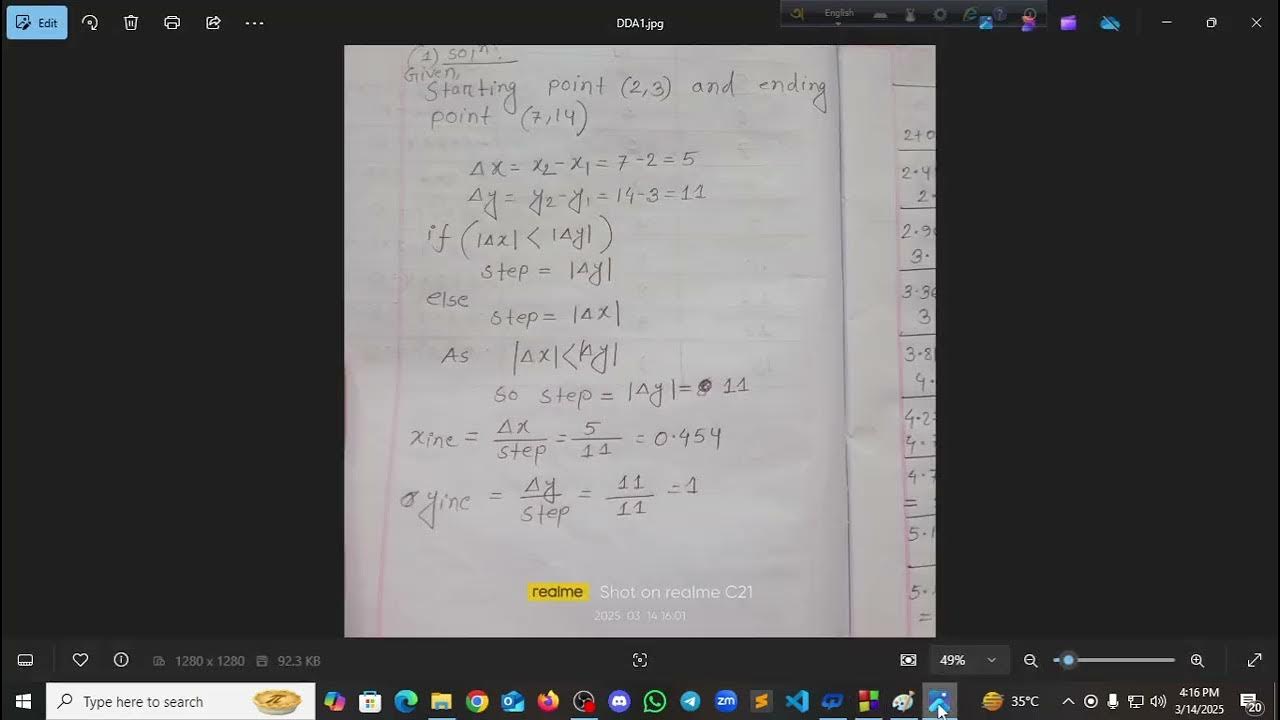 Edit
DDA1.jpg
English
(1) Solⁿ:
Given,
Starting point (2,3) and ending
point (7,14)
Δx = x₂-x₁ = 7-2 = 5
Δy = y₂-y₁ = 14-3 = 11
if (|Δx| < |Δy|)
step = |Δy|
else
step = |Δx|
As |Δx| < |Δy|
so step = |Δy| = 11
xinc = Δx/step = 5/11 = 0.454
yinc = Δy/step = 11/11 = 1
2+0
2.4
2.
2.9
3.
3.36
3
3.8
4.
4.2
4.
4.7
=
5.1
5.
=
realme Shot on realme C21
2025.03.14 16:01
1280 x 1280 92.3 KB
49%
Type here to search
zm
35°C
4:16 PM
3/14/2025
20